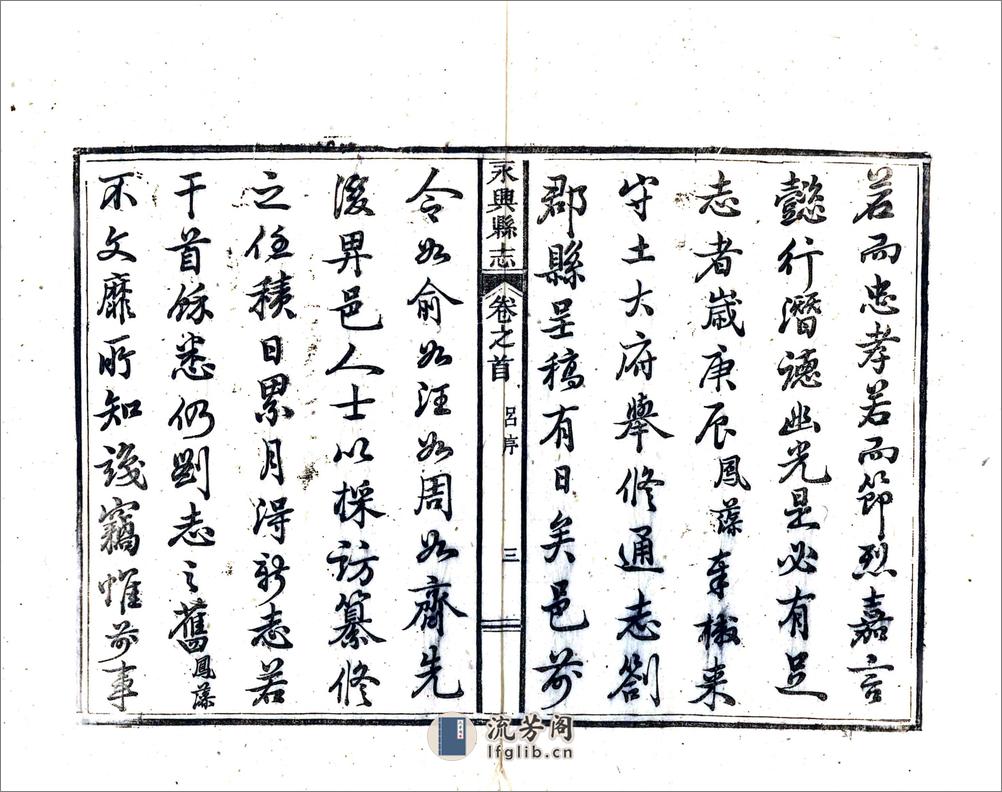 若而忠孝若而節烈嘉言
懿行潛德幽光是必有足
志者歲庚辰鳳藻奉檄來
守土大府舉修通志劄
郡縣呈稿有日矣邑前
永興縣志
卷之首
呂序
三
令如俞如汪如周如齊先
後畀邑人士以採訪纂修
之任積日累月得新志若
干首餘悉仍劉志之舊鳳藻
不文靡所知識竊惟前事
流芳阁
lfglib.cn